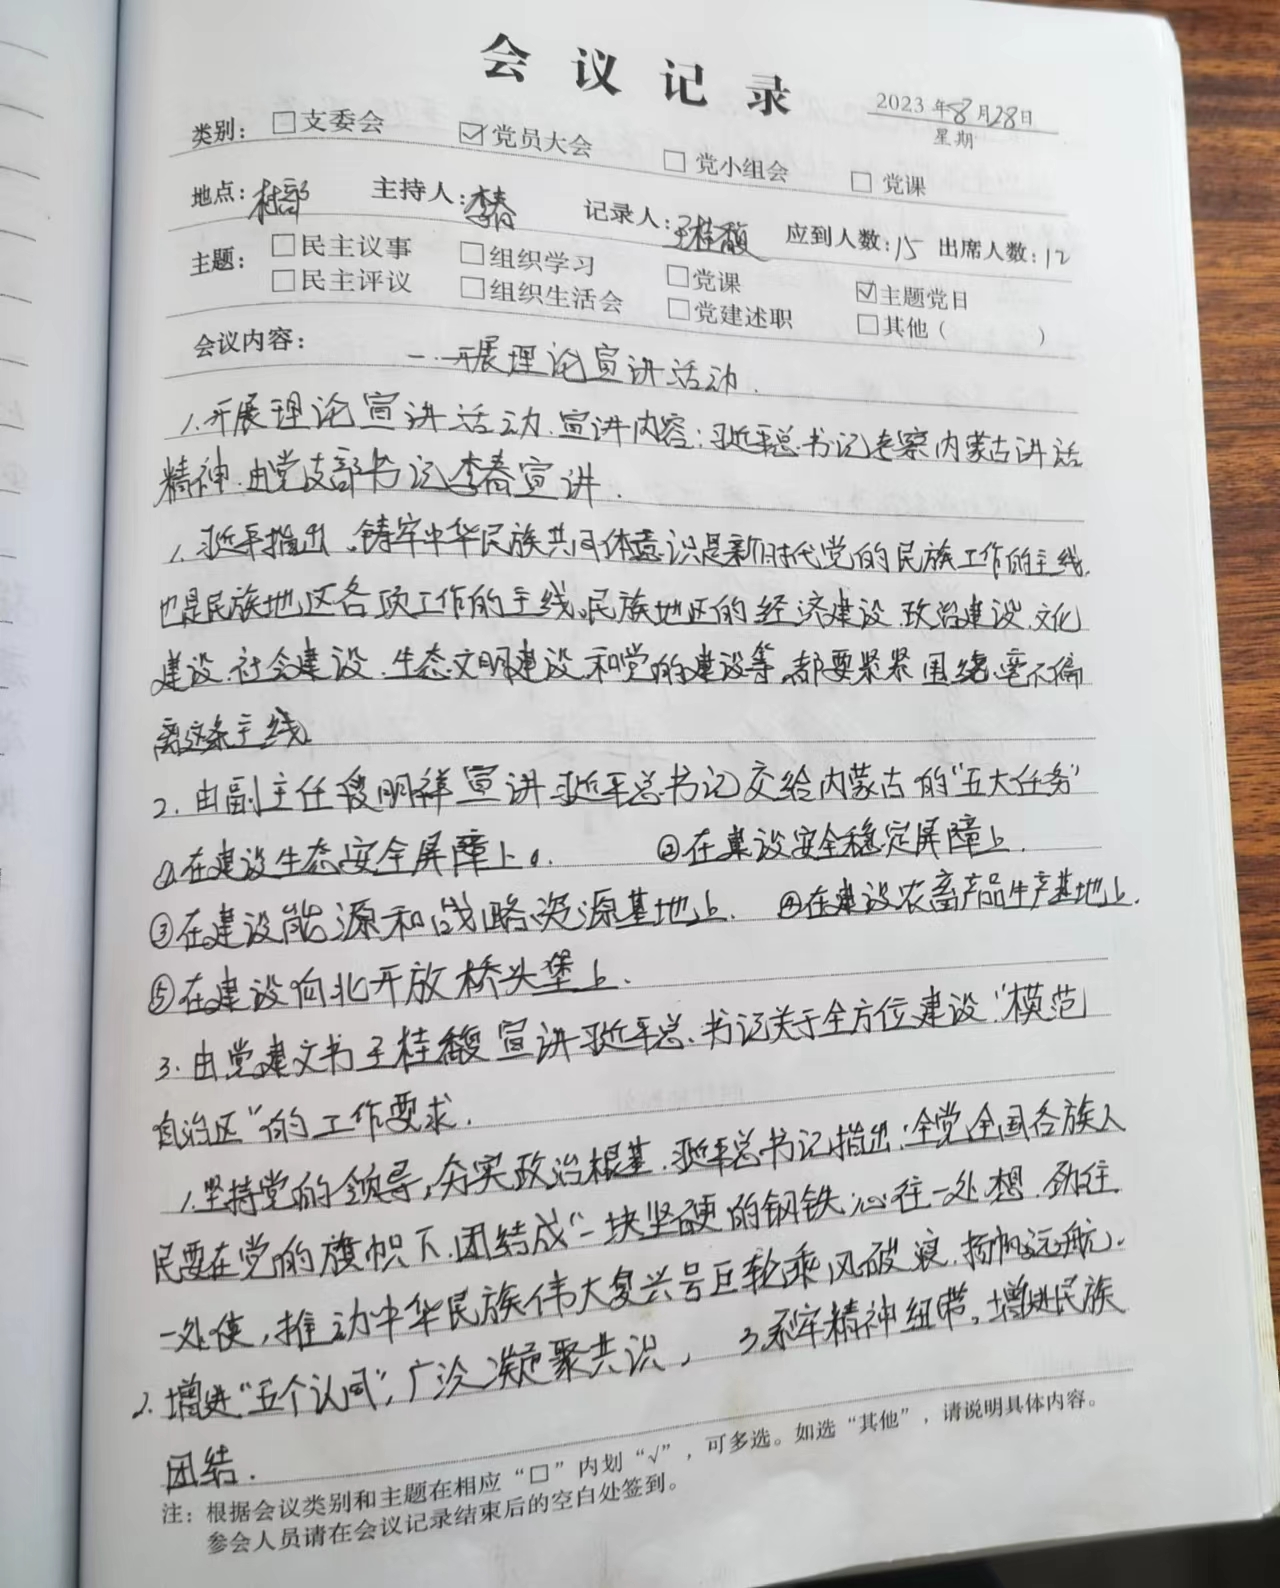 会议记录
2023年8月28日
星期
类别：□支委会 ☑党员大会 □党小组会 □党课
地点：村部 主持人：李春 记录人：王桂馥 应到人数：15 出席人数：12
主题：□民主议事 □组织学习 □党课 ☑主题党日
□民主评议 □组织生活会 □党建述职 □其他（ ）
会议内容： 一．开展理论宣讲活动．
1.开展理论宣讲活动．宣讲内容：习近平总书记考察内蒙古讲话
精神．由党支部书记李春宣讲．
1．习近平指出，铸牢中华民族共同体意识是新时代党的民族工作的主线，
也是民族地区各项工作的主线。民族地区的经济建设．政治建设．文化
建设．社会建设．生态文明建设和党的建设等，都要紧紧围绕，毫不偏
离这条主线．
2．由副主任段明祥宣讲习近平总书记交给内蒙古的“五大任务”
①在建设生态安全屏障上。 ②在建设安全稳定屏障上．
③在建设能源和战略资源基地上． ④在建设农畜产品生产基地上．
⑤在建设向北开放桥头堡上．
3．由党建文书王桂馥宣讲习近平总书记关于全方位建设“模范
自治区”的工作要求．
1．坚持党的领导，夯实政治根基．习近平总书记指出：全党全国各族人
民要在党的旗帜下团结成“一块坚硬的钢铁”心往一处想．劲往
一处使，推动中华民族伟大复兴号巨轮乘风破浪．扬帆远航．
2．增进“五个认同”，广泛凝聚共识， 3．系牢精神纽带，增进民族
团结．
注：根据会议类别和主题在相应“□”内划“√”，可多选。如选“其他”，请说明具体内容。
参会人员请在会议记录结束后的空白处签到。